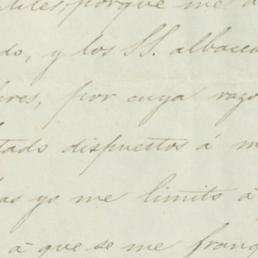 porque me
do, y los SS. albacea
res, por cuya razo
tado dispuestos á m
as yo me limito á
á que se me franq